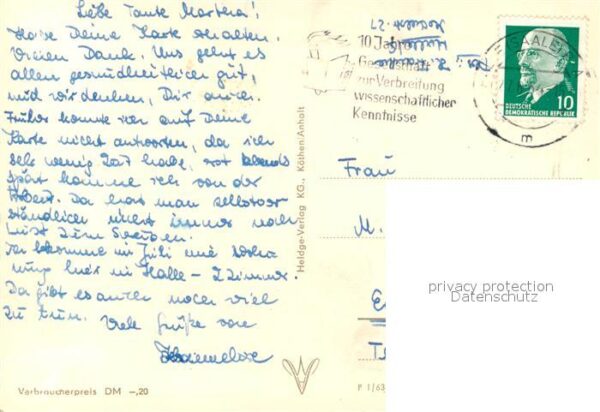 Liebe Tante Martha!
Habe Deine Karte erhalten.
Vielen Dank. Uns geht es
allen gesundheitlich gut,
und wir denken, Dir auch.
Früher konnte ich auf Deine
Karte nicht antworten, da ich
sehr wenig Zeit habe, erst abends
spät komme ich von der
Arbeit. Da hat man selbstver
ständlich nicht immer noch
Lust zum Schreiben.
Ich bekomme im Juli eine Wohn
ung hier in Halle - 2 Zimmer.
Da gibt es auch noch viel
zu tun. Viele Grüße von
Hannelore
Verbraucherpreis DM -,20
Heldge-Verlag KG., Köthen/Anhalt
10 Jahre
Gesellschaft
zur Verbreitung
wissenschaftlicher
Kenntnisse
SAALE
m
DEUTSCHE
DEMOKRATISCHE REPUBLIK
10
Frau
M.
privacy protection
Datenschutz
P 1/63